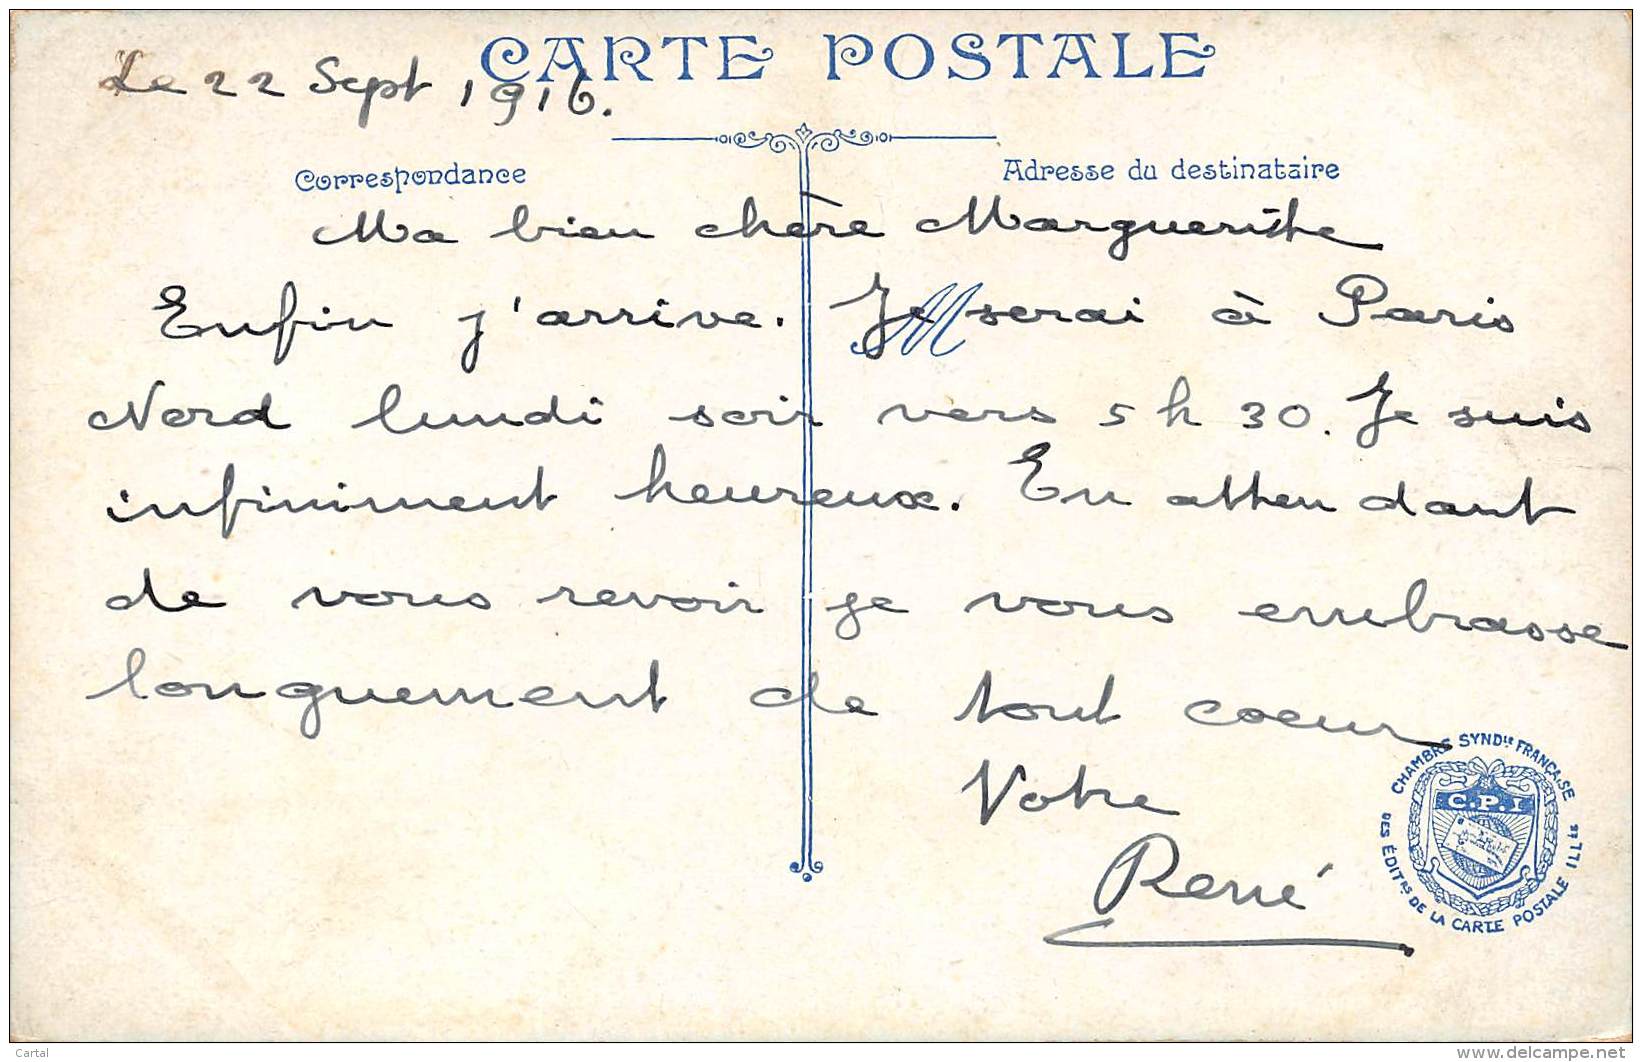 CARTE POSTALE
Le 22 Sept 1916.
Correspondance
Adresse du destinataire
Ma bien chère Marguerithe
M
Enfin j'arrive. Je serai à Paris
Nord lundi soir vers 5 h 30. Je suis
infiniment heureux. En atten dant
de vous revoir je vous embrasse
longuement de tout coeur
Votre
René
CHAMBRE SYNDLE FRANÇAISE
DES ÉDITRS DE LA CARTE POSTALE ILLÉE
C.P.I
Cartal
www.delcampe.net